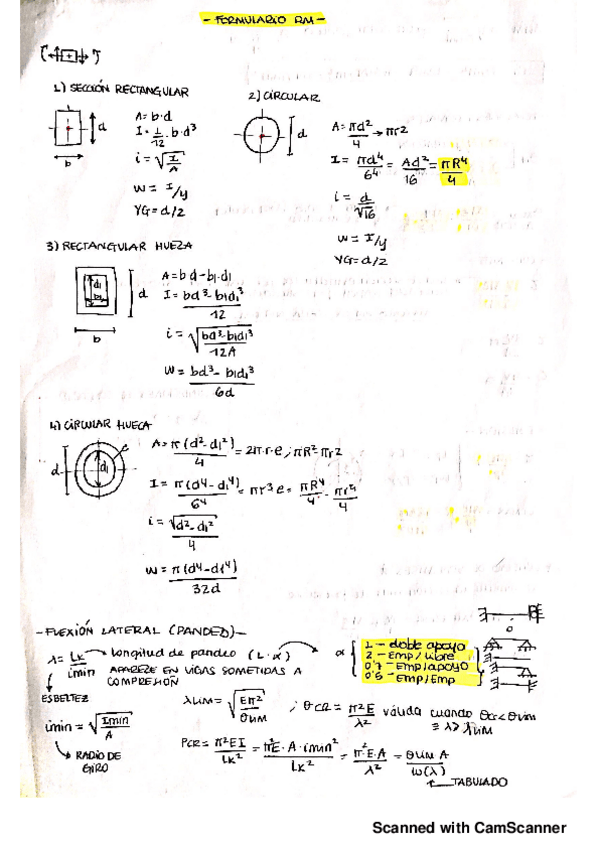 - FORMULARIO RM -
1) SECCIÓN RECTANGULAR
d
b
A = b·d
I = 1/12 · b·d³
i = √(I/A)
W = I/y
YG = d/2
2) CIRCULAR
d
A = πd²/4 → πr²
I = πd⁴/64 = Ad²/16 = πR⁴/4
i = d/√16
W = I/y
YG = d/2
3) RECTANGULAR HUECA
d
d₁
b₁
b
A = bd - b₁·d₁
I = bd³ - b₁d₁³/12
i = √(bd³ - b₁d₁³/12A)
W = bd³ - b₁d₁³/6d
4) CIRCULAR HUECA
d
d₁
e
A = π(d² - d₁²)/4 = 2π·r·e ; πR² - πr²
I = π(d⁴ - d₁⁴)/64 = πr³e = πR⁴/4 - πr⁴/4
i = √(d² - d₁²)/4
W = π(d⁴ - d₁⁴)/32d
- FLEXIÓN LATERAL (PANDEO) -
λ = Lk/imin → longitud de pandeo (L·α)
APARECE EN VIGAS SOMETIDAS A
COMPRESIÓN
ESBELTEZ
α
1 - doble apoyo
2 - emp/libre
0'7 - emp/apoyo
0'5 - Emp/Emp
imin = √(Imin/A)
RADIO DE
GIRO
λLIM = √(Eπ²/σLIM) ; σCR = π²E/λ² válida cuando σCR < σLIM
≡ λ > λLIM
PCR = π²EI/Lk² = π²E·A·imin²/Lk² = π²·E·A/λ² = σLIM A/ω(λ)
TABULADO
Scanned with CamScanner